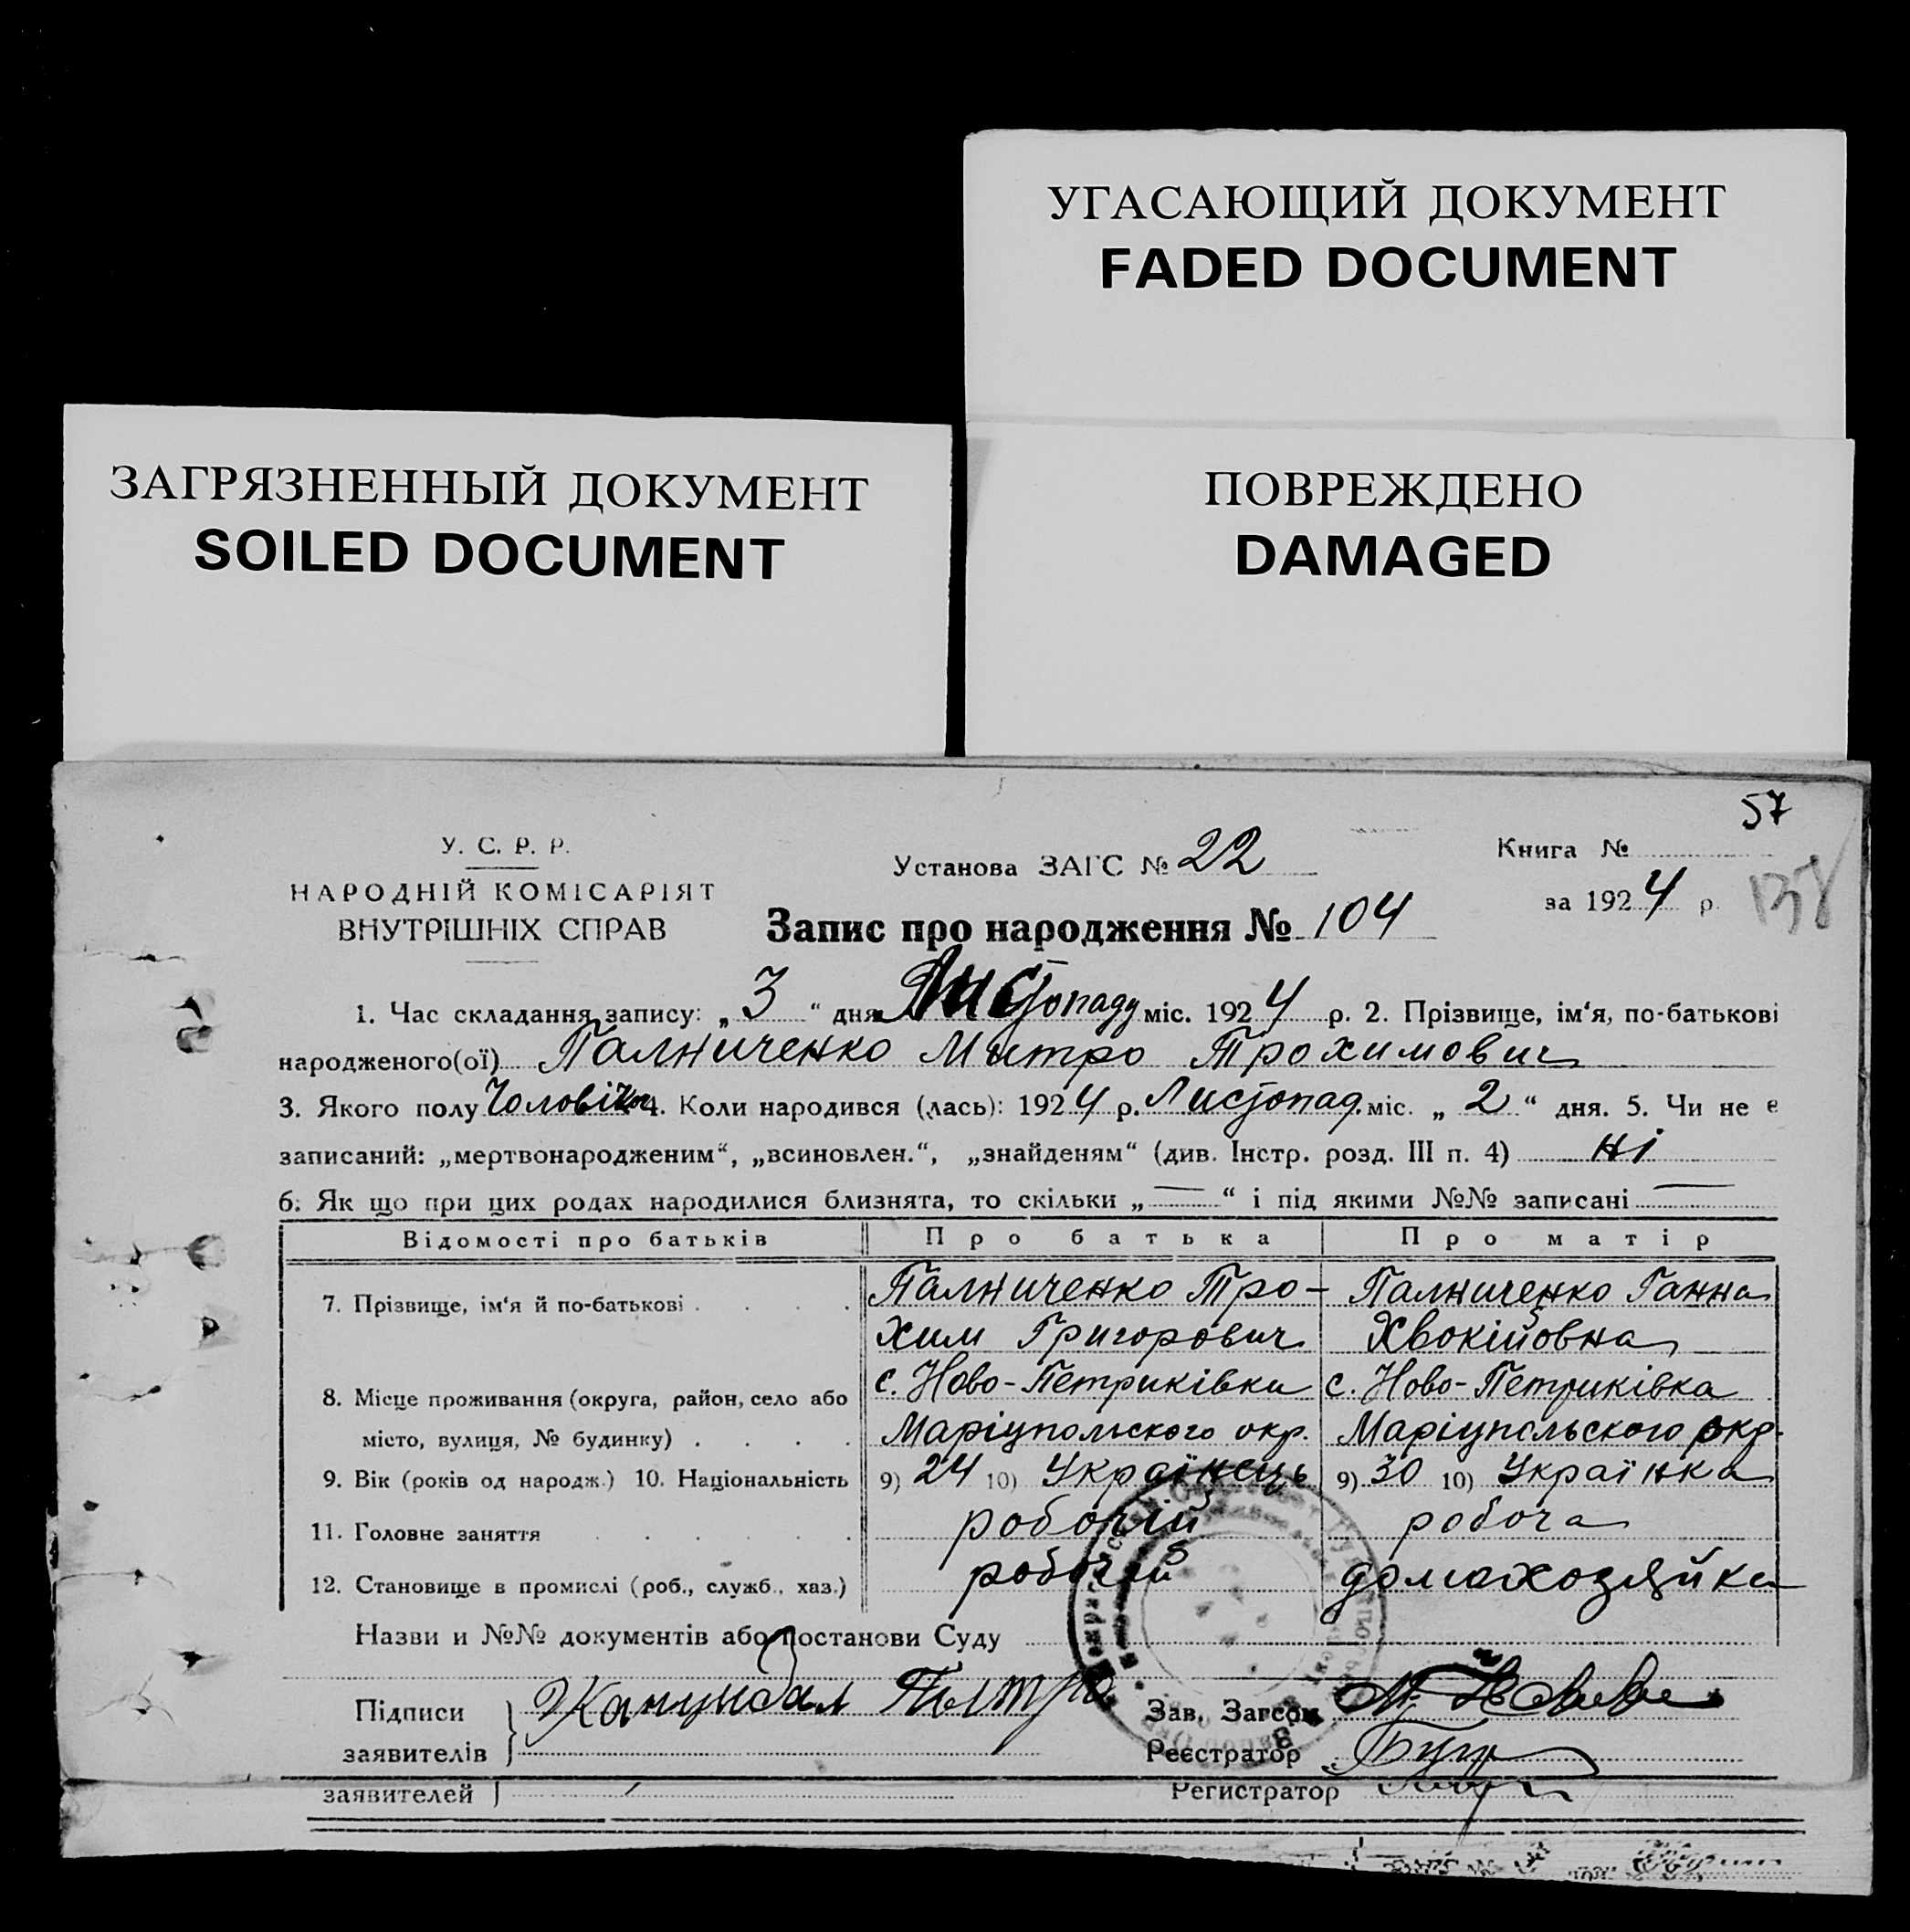 УГАСАЮЩИЙ ДОКУМЕНТ
FADED DOCUMENT
ЗАГРЯЗНЕННЫЙ ДОКУМЕНТ
SOILED DOCUMENT
ПОВРЕЖДЕНО
DAMAGED
57
У. С. Р. Р.
НАРОДНІЙ КОМІСАРІЯТ
ВНУТРІШНІХ СПРАВ
Установа ЗАГС № 22
Книга №
за 1924 р.
138
Запис про народження № 104
1. Час складання запису: „3“ дня Листопаду міс. 1924 р. 2. Прізвище, ім‘я, по-батькові
народженого(ої) Палниченко Митро Трохимович
3. Якого полу Чоловіч. 4. Коли народився (лась): 1924 р. Листопад. міс. „2“ дня. 5. Чи не є
записаний: „мертвонародженим“, „всиновлен.“, „знайденям“ (див. Інстр. розд. III п. 4) ні
6. Як що при цих родах народилися близнята, то скільки „—“ і під якими №№ записані —
Відомості про батьків Про батька Про матір
7. Прізвище, ім‘я й по-батькові . . . . Палниченко Тро- Палниченко Ганна
хим Григорович Хвокійовна
8. Місце проживання (округа, район, село або с. Ново-Петриківки с. Ново-Петриківка
місто, вулиця, № будинку) . . . . Маріупольского окр. Маріупольского окр.
9. Вік (років од народж.) 10. Національність 9) 24 10) Українець 9) 30 10) Українка
11. Головне заняття . . . . . робочій робоча
12. Становище в промислі (роб., служб., хаз.) робочій домахозяйка
Назви и №№ документів або постанови Суду
Підписи
заявителів
Зав. Загсом
Реєстратор
заявителей
Регистратор